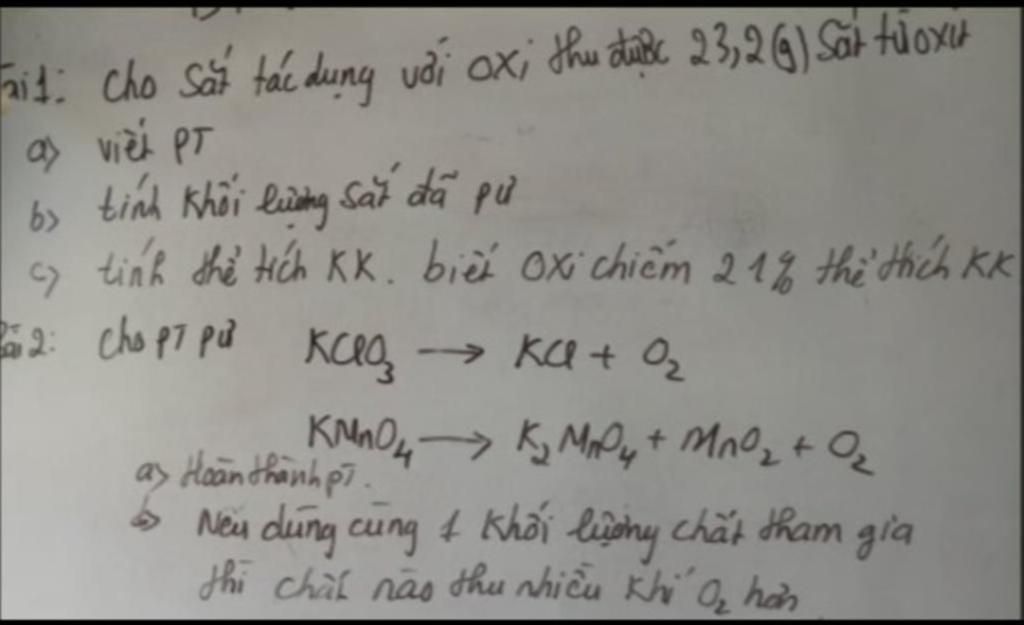 ài 1: Cho Sắt tác dụng với OXi thu được 23,2(g) Sắt từ oxit
a) viết PT
b) tính khối lượng sắt đã pư
c) tính thể tích KK. biết OXi chiếm 21% thể thích KK
ài 2: Cho PT pư KClO3 → KCl + O2
KMnO4 → K2MnO4 + MnO2 + O2
a) Hoàn thành PT.
b) Nếu dùng cùng 1 khối lượng chất tham gia
thì chất nào thu nhiều khí O2 hơn